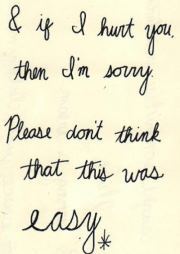 & if I hurt you,
then I'm sorry.
Please don't think
that this was
easy*